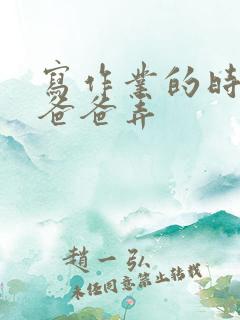 寫作業的時
爸爸弄
趙一弘
未任同意禁止转载